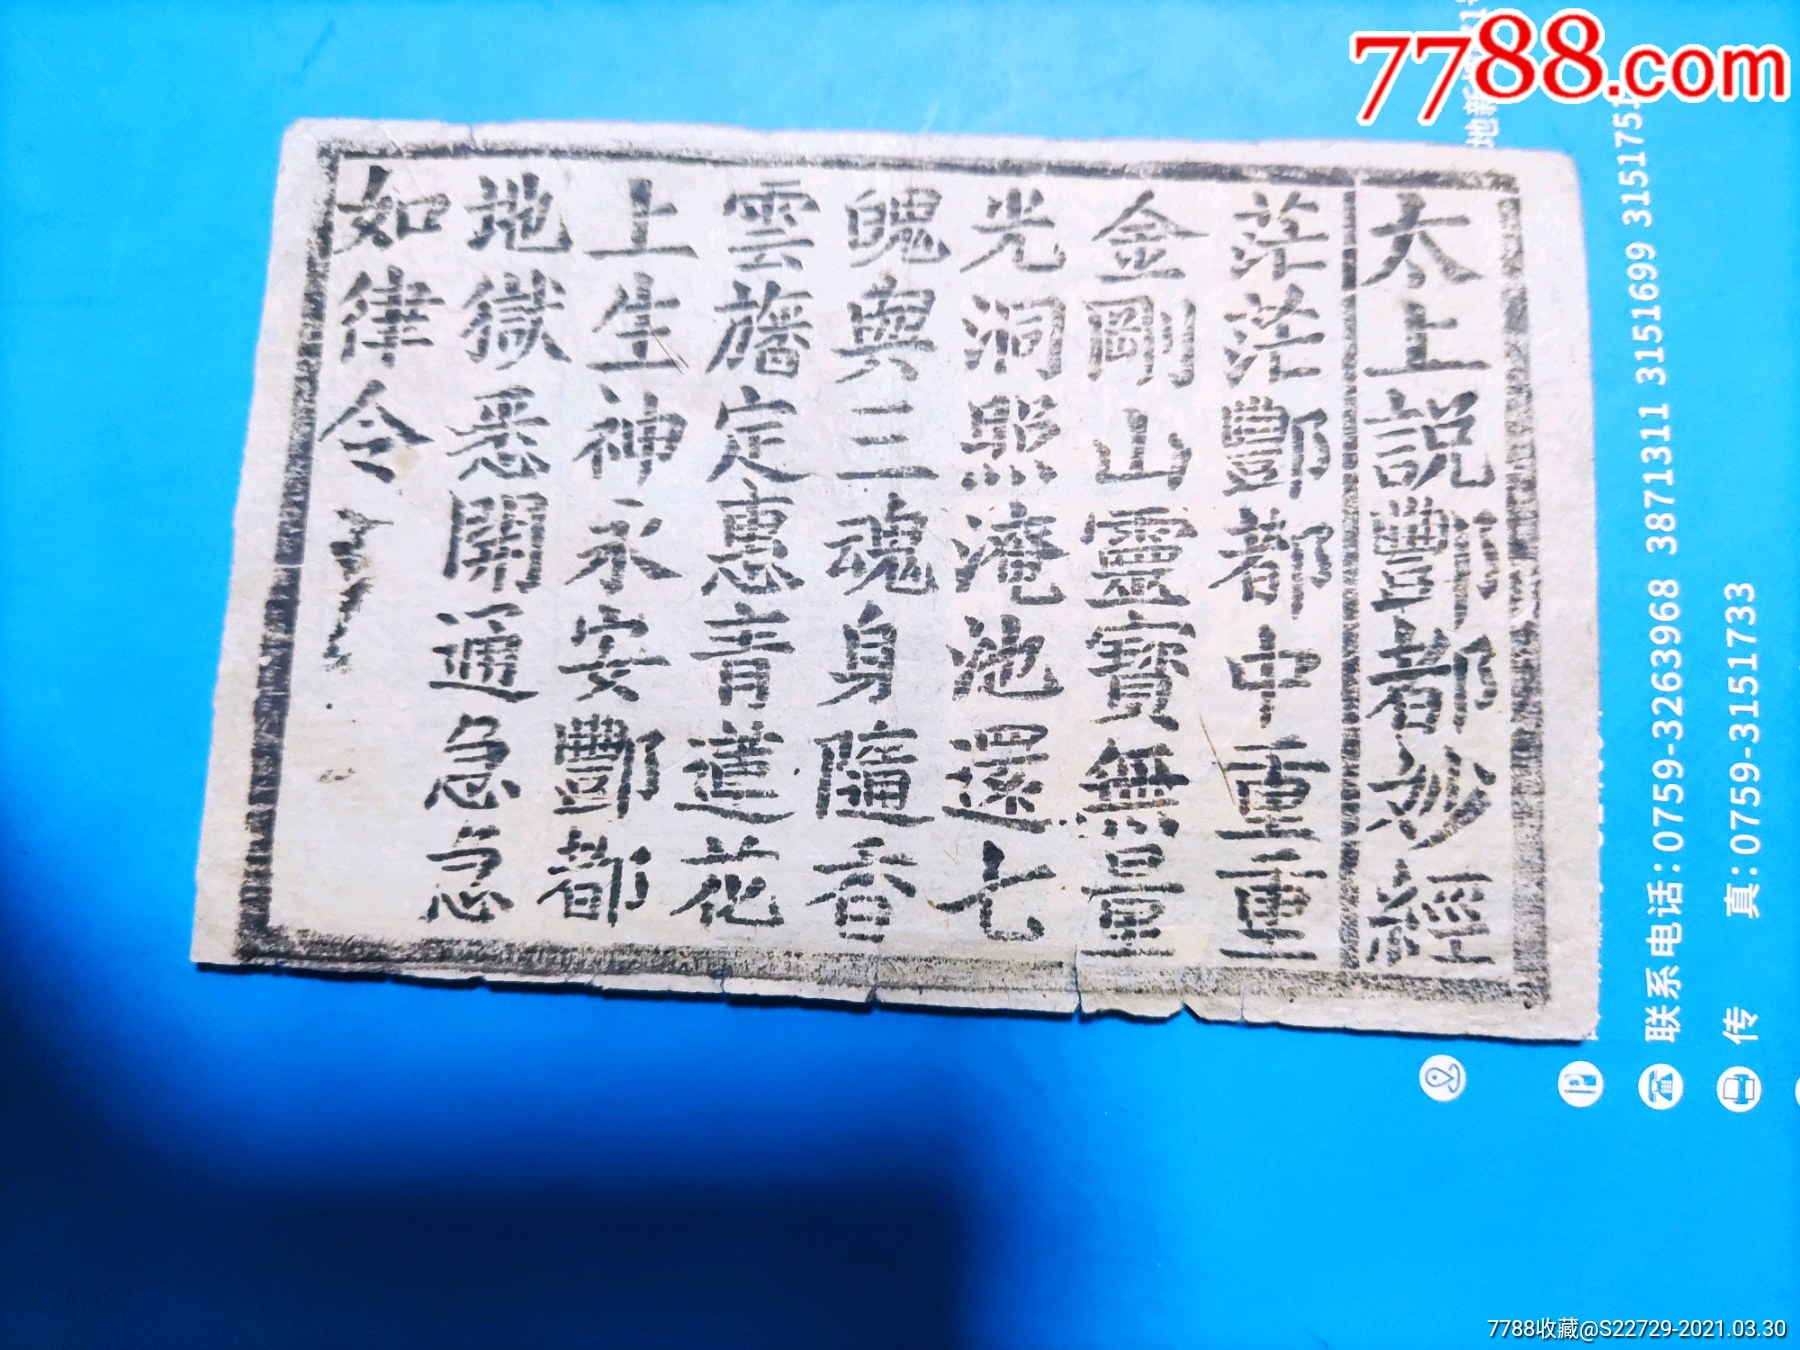 太上説酆都妙經
茫茫酆都中重重
金剛山靈寶無量
光洞照淹池還七
魄與三魂身隨香
雲旛定惠青蓮花
上生神永安酆都
地獄悉開通急急
如律令
7788.com
3151699 315175
联系电话:0759-3263968 3871311 3151699 3151751
传 真:0759-3151733
7788收藏@S22729-2021.03.30